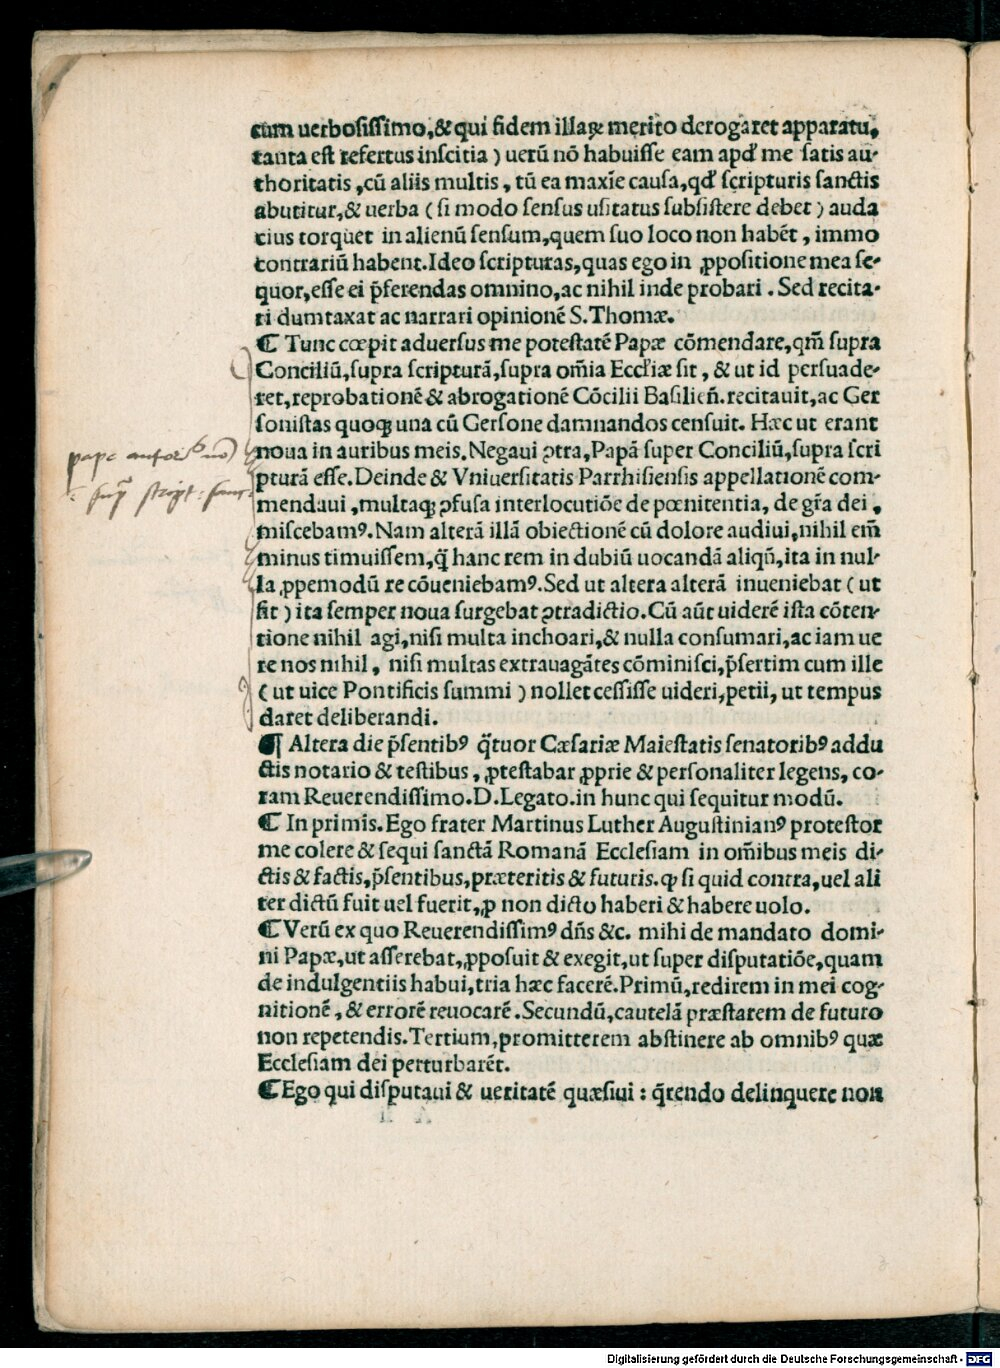 cum uerboſiſſimo,&qui fidem illaꝝ merito derogaret apparatu,
tanta eſt refertus inſcitia) uerū nō habuiſſe eam apđ me ſatis au-
thoritatis,cū aliis multis, tū ea maxīe cauſa,qđ ſcripturis ſanctis
abutitur,& uerba (ſi modo ſenſus uſitatus ſubſiſtere debet) auda
cius torquet in alienū ſenſum,quem ſuo loco non habēt, immo
contrariū habent.Ideo ſcripturas,quas ego in ꝓpoſitione mea ſe-
quor,eſſe ei p̄ferendas omnino,ac nihil inde probari. Sed recita-
ri dumtaxat ac narrari opinionē S.Thomæ.
¶ Tunc cœpit aduerſus me poteſtatē Papæ cōmendare,qm̄ ſupra
Conciliū,ſupra ſcripturā,ſupra om̄ia Eccl̄iæ ſit, & ut id perſuade-
ret,reprobationē & abrogationē Cōcilii Baſilien̄.recitauit,ac Ger
ſoniſtas quoqꝫ una cū Gerſone damnandos cenſuit. Hæc ut erant
noua in auribus meis.Negaui ꝯtra,Papā ſuper Conciliū,ſupra ſcri
pturā eſſe.Deinde & Vniuerſitatis Parrhiſienſis appellationē com-
mendaui,multaqꝫ ꝯfuſa interlocutiōe de pœnitentia, de gr̄a dei,
miſcebamꝰ.Nam alterā illā obiectionē cū dolore audiui,nihil em̄
minus timuiſſem,q̄ hanc rem in dubiū uocandā aliqn̄,ita in nul-
la ꝓpemodū re cōueniebamꝰ.Sed ut altera alterā inueniebat (ut
fit) ita ſemper noua ſurgebat ꝯtradictio.Cū aūt uiderē iſta cōten-
tione nihil agi,niſi multa inchoari,& nulla conſumari,ac iam ue
re nos nihil, niſi multas extrauagātes cōminiſci,p̄ſertim cum ille
(ut uice Pontificis ſummi) nollet ceſſiſſe uideri,petii, ut tempus
daret deliberandi.
¶ Altera die p̄ſentibꝰ q̄tuor Cæſariæ Maieſtatis ſenatoribꝰ addu
ctis notario & teſtibus, ꝓteſtabar ꝓprie & perſonaliter legens, co-
ram Reuerendiſſimo.D.Legato.in hunc qui ſequitur modū.
¶ In primis.Ego frater Martinus Luther Auguſtinianꝰ proteſtor
me colere & ſequi ſanctā Romanā Eccleſiam in om̄ibus meis di-
ctis & factis,p̄ſentibus,præteritis & futuris.ꝙ ſi quid contra,uel ali
ter dictū fuit uel fuerit,ꝓ non dicto haberi & habere uolo.
¶ Verū ex quo Reuerendiſſimꝰ dn̄s &c. mihi de mandato domi-
ni Papæ,ut aſſerebat,ꝓpoſuit & exegit,ut ſuper diſputatiōe,quam
de indulgentiis habui,tria hæc facerē.Primū,redirem in mei cog-
nitionē, & errorē reuocarē.Secundū,cautelā præſtarem de futuro
non repetendis.Tertium,promitterem abſtinere ab omnibꝰ quæ
Eccleſiam dei perturbarēt.
¶ Ego qui diſputaui & ueritatē quæſiui: q̄rendo delinquere non
pape autori
Digitalisierung gefördert durch die Deutsche Forschungsgemeinschaft - DFG